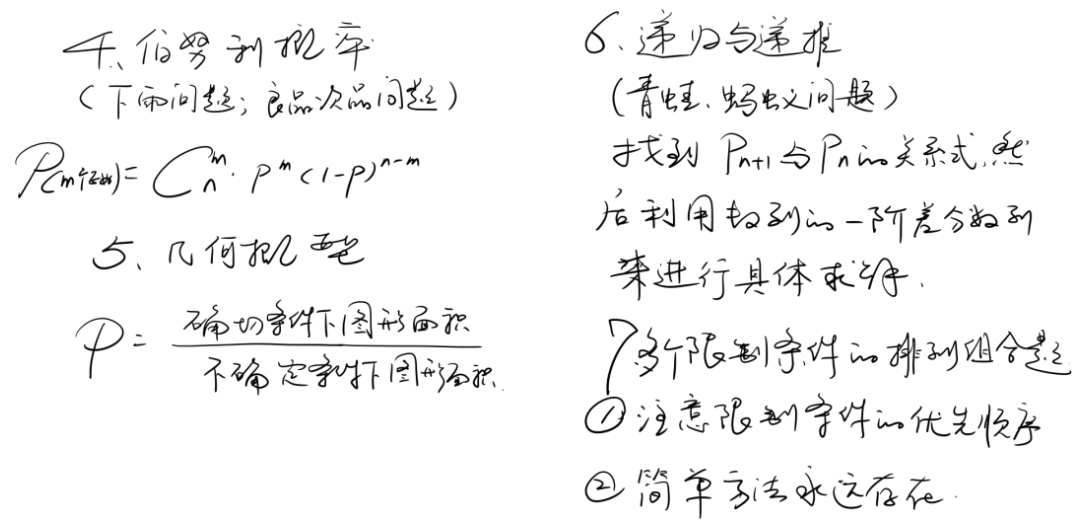 4、伯努利概率
(下雨问题;良品次品问题)
P(m个正面)= C_n^m · p^m (1-p)^{n-m}
5、几何概型
P = 确切条件下图形面积 / 不确定条件下图形面积.
6、递归与递推
(青蛙、蚂蚁问题)
找到 P_{n+1} 与 P_n 的关系式,然
后利用数列的一阶差分数列
来进行具体求解.
7多个限制条件的排列组合题
① 注意限制条件的优先顺序
② 简单方法永远存在.